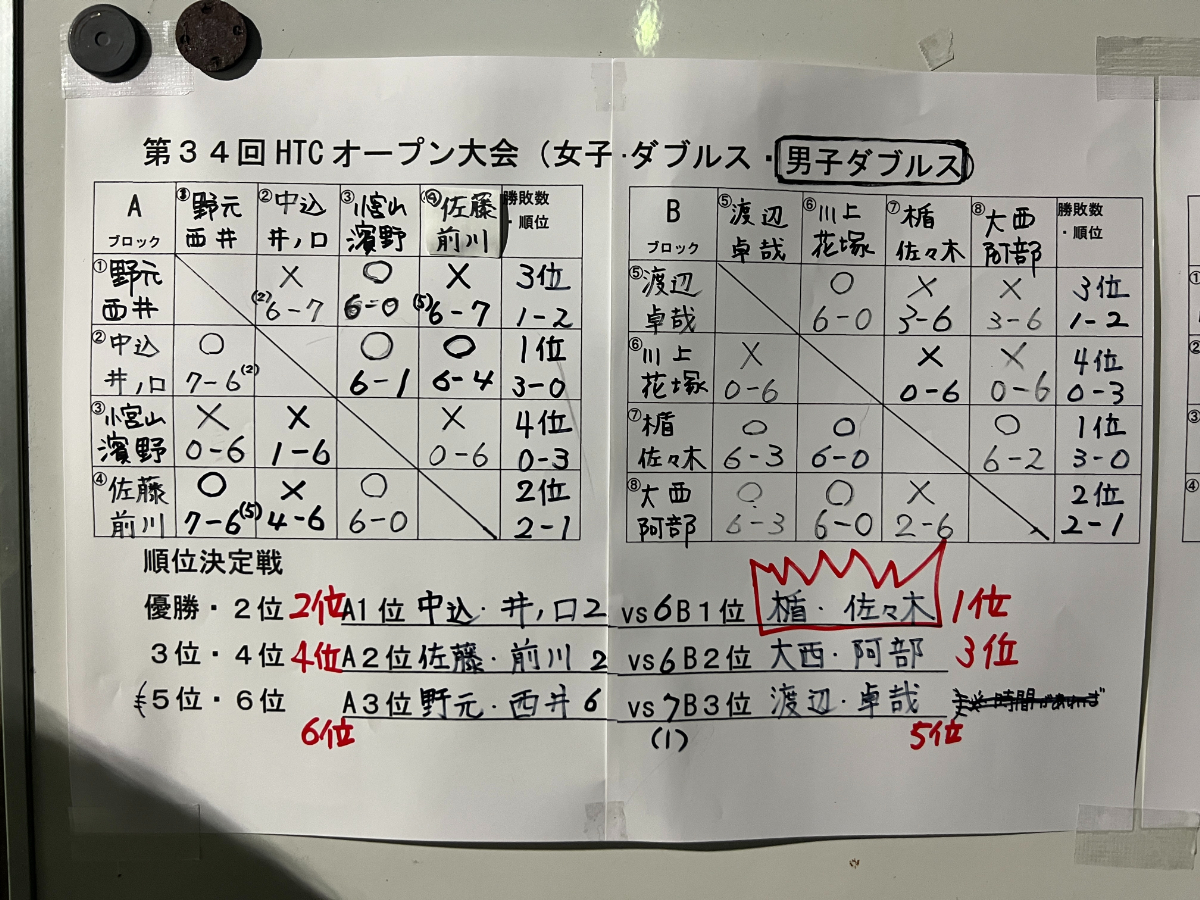 第34回 HTC オープン大会（女子・ダブルス・男子ダブルス）
A ブロック ①野元 西井 ②中込 井ノ口 ③小宮山 濱野 ④佐藤 前川 勝敗数・順位
①野元 西井 × (2)6-7 ○ 6-0 × (5)6-7 3位 1-2
②中込 井ノ口 ○ 7-6(2) ○ 6-1 ○ 6-4 1位 3-0
③小宮山 濱野 × 0-6 × 1-6 × 0-6 4位 0-3
④佐藤 前川 ○ 7-6(5) × 4-6 ○ 6-0 2位 2-1
B ブロック ⑤渡辺 卓哉 ⑥川上 花塚 ⑦楯 佐々木 ⑧大西 阿部 勝敗数・順位
⑤渡辺 卓哉 ○ 6-0 × 3-6 × 3-6 3位 1-2
⑥川上 花塚 × 0-6 × 0-6 × 0-6 4位 0-3
⑦楯 佐々木 ○ 6-3 ○ 6-0 ○ 6-2 1位 3-0
⑧大西 阿部 ○ 6-3 ○ 6-0 × 2-6 2位 2-1
順位決定戦
優勝・2位 2位 A1位 中込・井ノ口 2 vs 6 B1位 楯・佐々木 1位
3位・4位 4位 A2位 佐藤・前川 2 vs 6 B2位 大西・阿部 3位
5位・6位 A3位 野元・西井 6 vs 7 B3位 渡辺・卓哉
6位 (1) 5位